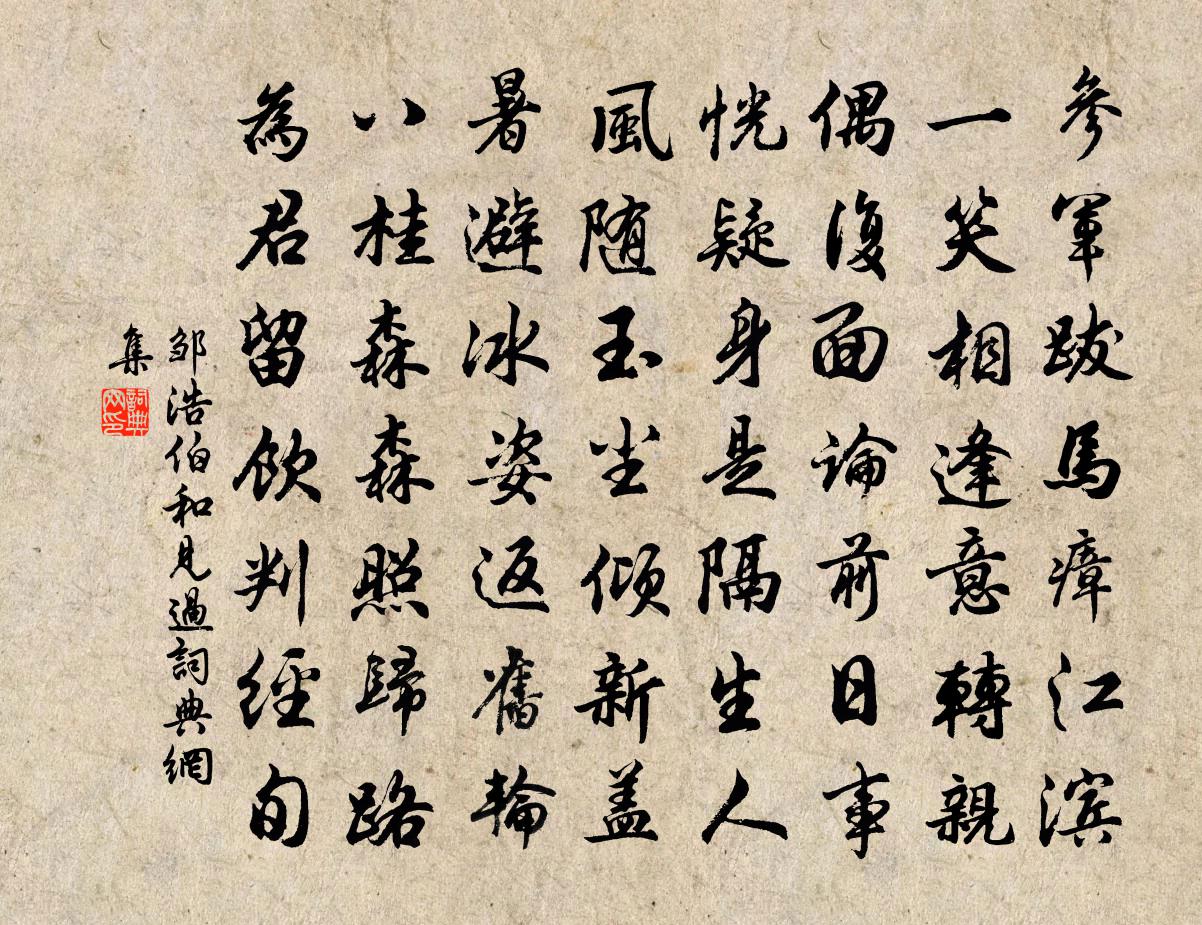 參軍跋馬瘴江濱
一笑相逢意轉親
偶復面論前日事
恍疑身是隔生人
風随玉坐傾新盖
暑避冰姿返舊輪
八桂森森照歸路
為君留飲判經旬
邹浩伯和見過詞典網
集
詞典
网印